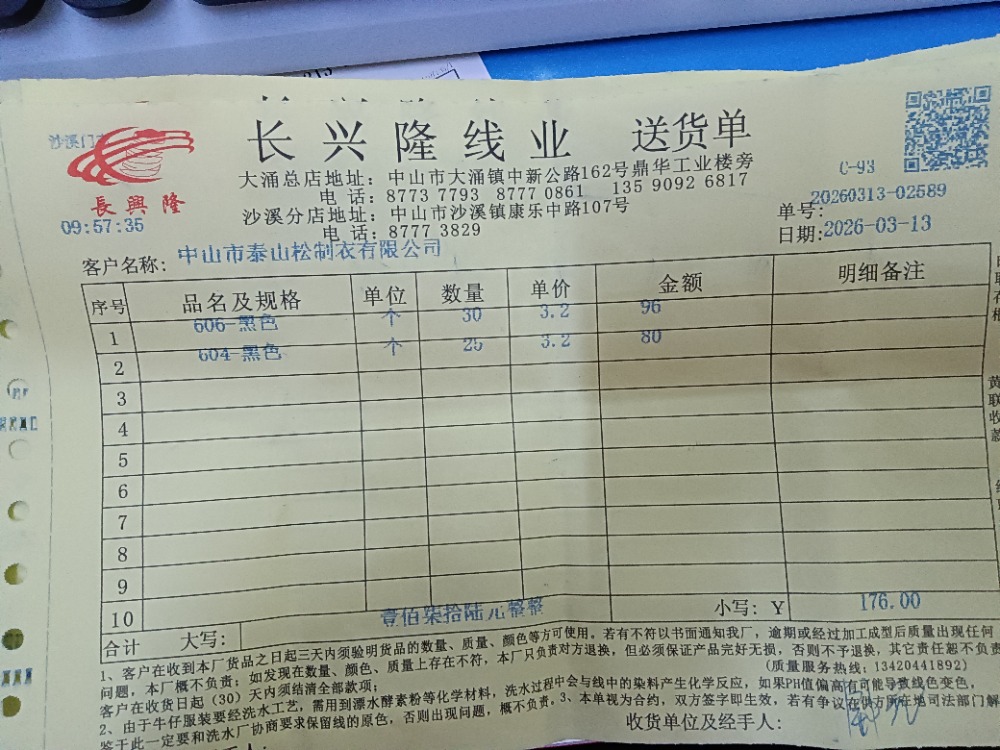 长兴隆线业 送货单
長興隆
C-93
大涌总店地址：中山市大涌镇中新公路162号鼎华工业楼旁
电话：8773 7793 8777 0861 135 9092 6817
沙溪分店地址：中山市沙溪镇康乐中路107号
电话：8777 3829
09:57:35
单号：20260313-02589
日期：2026-03-13
客户名称：中山市泰山松制衣有限公司
序号 品名及规格 单位 数量 单价 金额 明细备注
1 606-黑色 个 30 3.2 96
2 604-黑色 个 25 3.2 80
3
4
5
6
7
8
9
10
合计 大写：壹佰柒拾陆元整整 小写：Y 176.00
1、客户在收到本厂货品之日起三天内须验明货品的数量、质量、颜色等方可使用。若有不符以书面通知我厂，逾期或经过加工成型后质量出现任何
问题，本厂概不负责：如发现在数量、颜色、质量上存在不符，本厂只负责对方退换，但必须保证产品完好无损，否则不予退换，其它责任恕不负责
客户在收货日起（30）天内须结清全部款项； (质量服务热线：13420441892)
2、由于牛仔服装要经洗水工艺，需用到漂水酵素粉等化学材料，洗水过程中会与线中的染料产生化学反应，如果PH值偏高有可能导致线色变色，
鉴于此一定要和洗水厂协商要求保留线的原色，否则出现问题，概不负责。3、本单视为合约，双方签字即生效，若有争议在供方所在地司法部门解
收货单位及经手人：